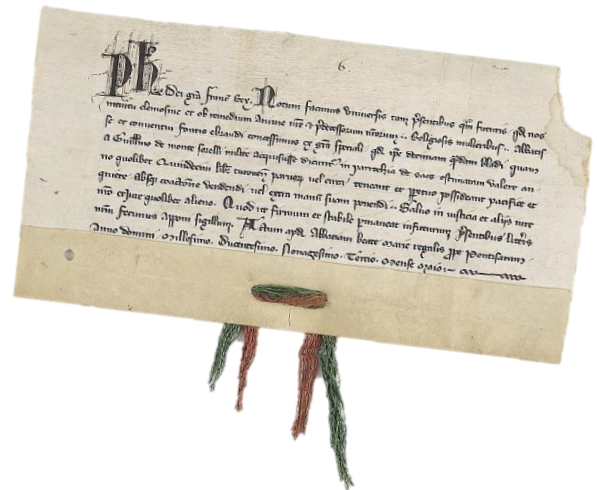 6.
Ph Dei gra franc Rex. Notum facimus Universis tam presentibus qm futuris qd nos
intuitu elemosine et ob remedium anime nre et predecessorum nrorum. Religiosis mulieribus. Abbatisse
et conventui concessimus ex gra speciali qd ipe decimam bladi quam
a Guillmo de monte milite acquisisse dicuntur in parrochia de valere an
no quolibet Quindecim libr turonen parvor vel circa teneant et perpetuo possideant pacifice et
quiete absq coactione vendendi vel extra manum suam ponendi. Salvo in justicia et aliis iure
nro et iure quolibet alieno. Quod ut firmum et stabile permaneat infuturum presentibus litteris
nrm fecimus apponi sigillum. Actum apud Abbatiam beate marie regalis ppe Pontisaram.
Anno domini. Millesimo. Ducentesimo. Nonagesimo. Tercio. Mense Maio